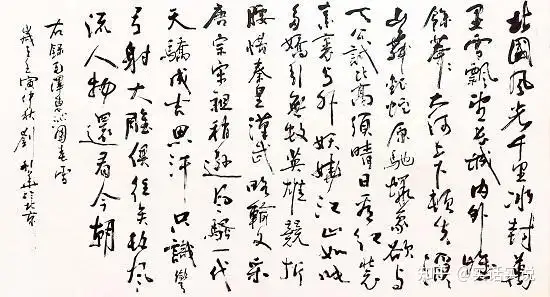 北國風光千里冰封萬
里雪飄望长城内外唯
餘莽莽大河上下頓失滔滔
山舞銀蛇原馳蠟象欲与
天公試比高須晴日看红装
素裹分外妖嬈江山如此
多嬌引無数英雄競折
腰惜秦皇漢武略輸文采
唐宗宋祖稍遜風騷一代
天驕成吉思汗只識彎
弓射大雕俱往矣数風
流人物還看今朝
右錄毛澤東沁園春雪
壬寅仲秋劉於北京
知乎